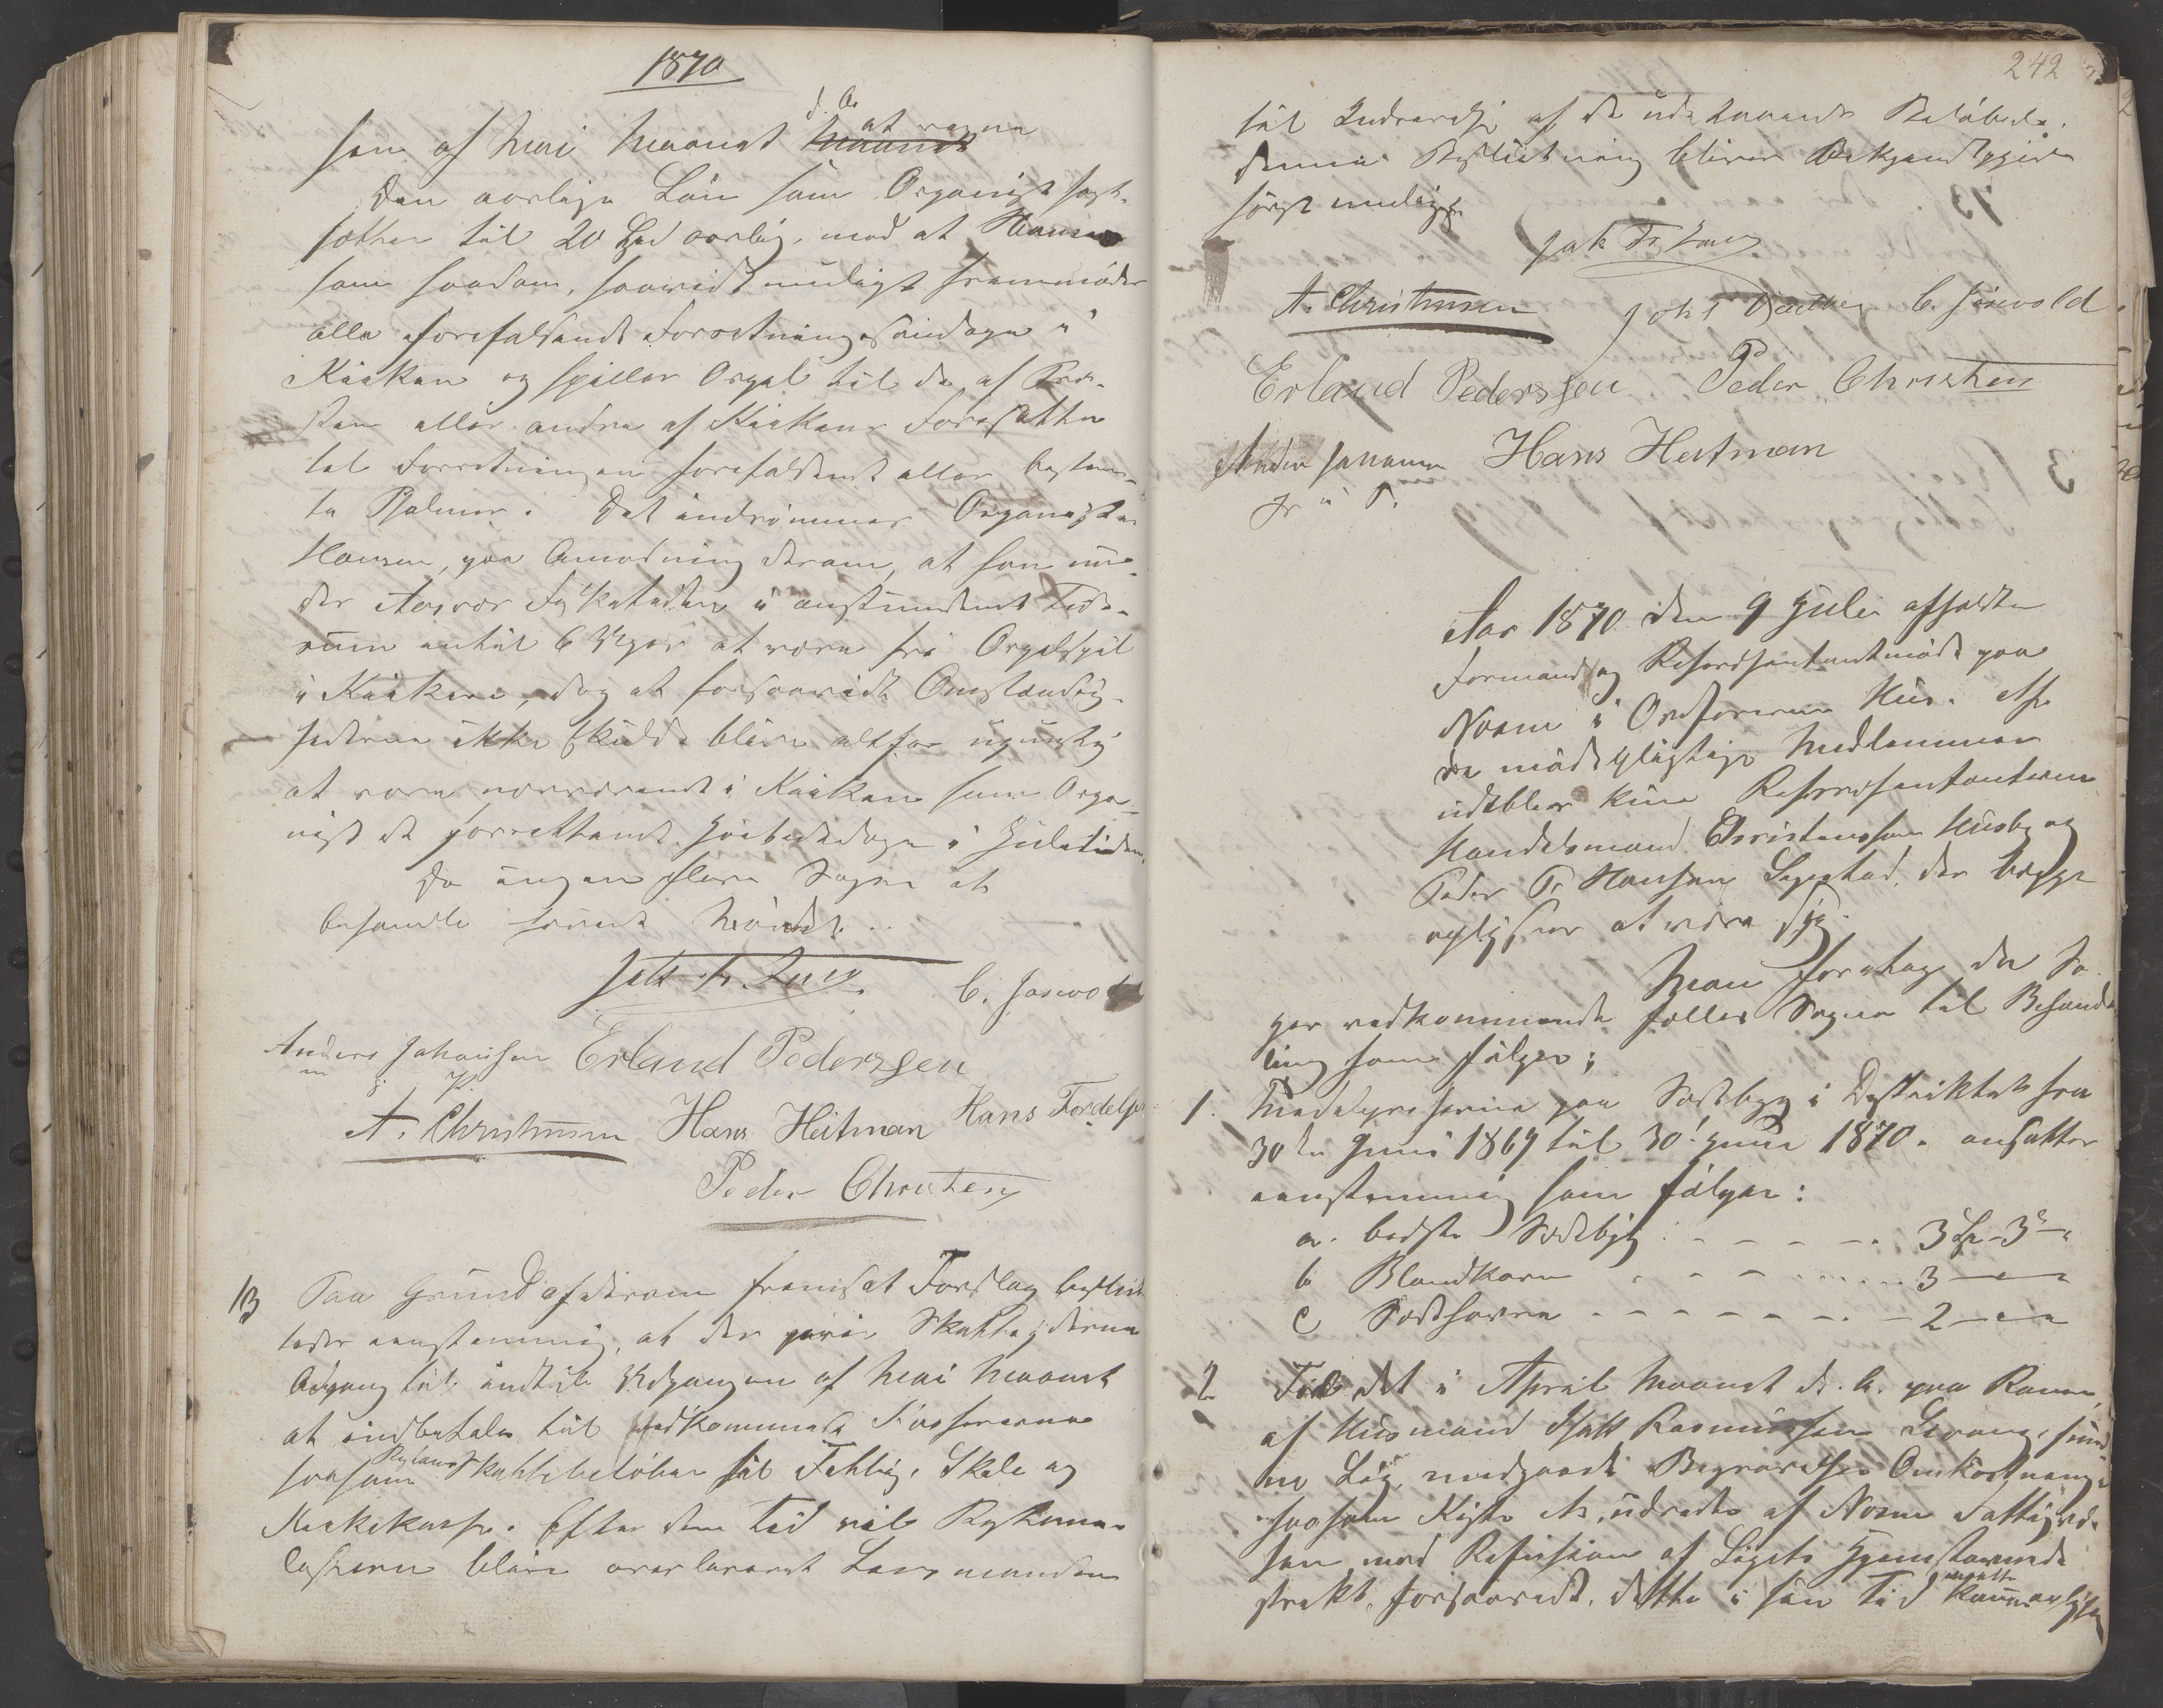 1870
fra af Mai Maaned d. A. at regne
den aarlige Løn som Organist fast-
sættes til 20 Spd aarlig, mod at Hansen
som saadan, saavidt muligt fremmøder
alle forefaldende Forretningssøndage i
Kirken og spiller Orgel til de, af Præ-
sten eller andre af Kirkens Foresatte
til Forretningen forefaldende eller bestem-
te Psalmer. Det indrømmes Organist
Hansen, paa Anmodning derom, at han un-
der Aarets Fisketider i anstundende Tids-
rum indtil 6 Uger at være fri Orgelspil
i Kirken, dog at forsaavidt Omstændig-
hederne ikke skulde blive altfor ugunstig
at være nærværende i Kirken som Orga-
nist de forrettende Høitidsdage i Juletiden.
Da ingen flere Sager at
behandle hævedes Mødet.
Jak Fr Zeus C. Jasvold
Anders Johansen Erland Pederssen
m. f. P.
A. Christensen Hans Heitman Hans Fordelsen
Peder Christen
13 Paa Grund af derom fremsat Forslag beslut-
tedes eenstemmig, at der gives Skatteyderne
Adgang til indtil Udgangen af Mai Maaned
at indbetale til vedkommende Kasserere
saasom Restance Skattebeløber til Fattig, Skole og
Kirkekasse. Efter den Tid vil Restance-
listerne blive overleveret Lensmanden
242
til Inddrivelse af de udestaaende Beløbede.
Denne Beslutning bliver Bekjendtgjort
først muligt.
Jak Fr Zeus
A. Christensen Johs C. Jasvold
Erland Pederssen Peder Christen
Anders Johansen Hans Heitman
m f P.
Aar 1870 den 9 Juli afholdtes
Formand og Repræsentantmøde paa
Nesne i Ordførerens Hus. Af
de mødepligtige Medlemmer
udeblev kun Repræsentanterne
Handelsmand Christensen Husby og
Peder P. Hansen der begge
oplystes at være syg.
Man foretog de Sa-
ger vedkommende fælles Sogne til Behand-
ling som følger:
1. Middelpriserne paa Sædbyg i Distriktet fra
30te Juni 1869 til 30. Juni 1870. ansattes
eenstemmig som følger:
a. bedste Sædebyg - - - - - 3 Sp - 3 s - "
b Blandkorn - - - - - 3 - " - "
c Sædhavre - - - - - 2 - " - "
2 Til det i April Maaned d. A. paa Ranen
af Husmand Jsak Rasmussen Levang, fund-
ne Liig, medgaaede Begravelses Omkostninger
saasom Kiste &c, udredes af Nesne Fattigvæ-
sen mod Refusion af Ligets Hjemstavnsdi-
strikt, forsaavidt, dette i sin Tid maatte kunne oplyses